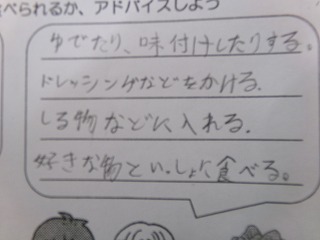 べられるか、アドバイスしよう
ゆでたり、味付けしたりする。
ドレッシングなどをかける.
しる物などに入れる.
好きな物といっしょに食べる。